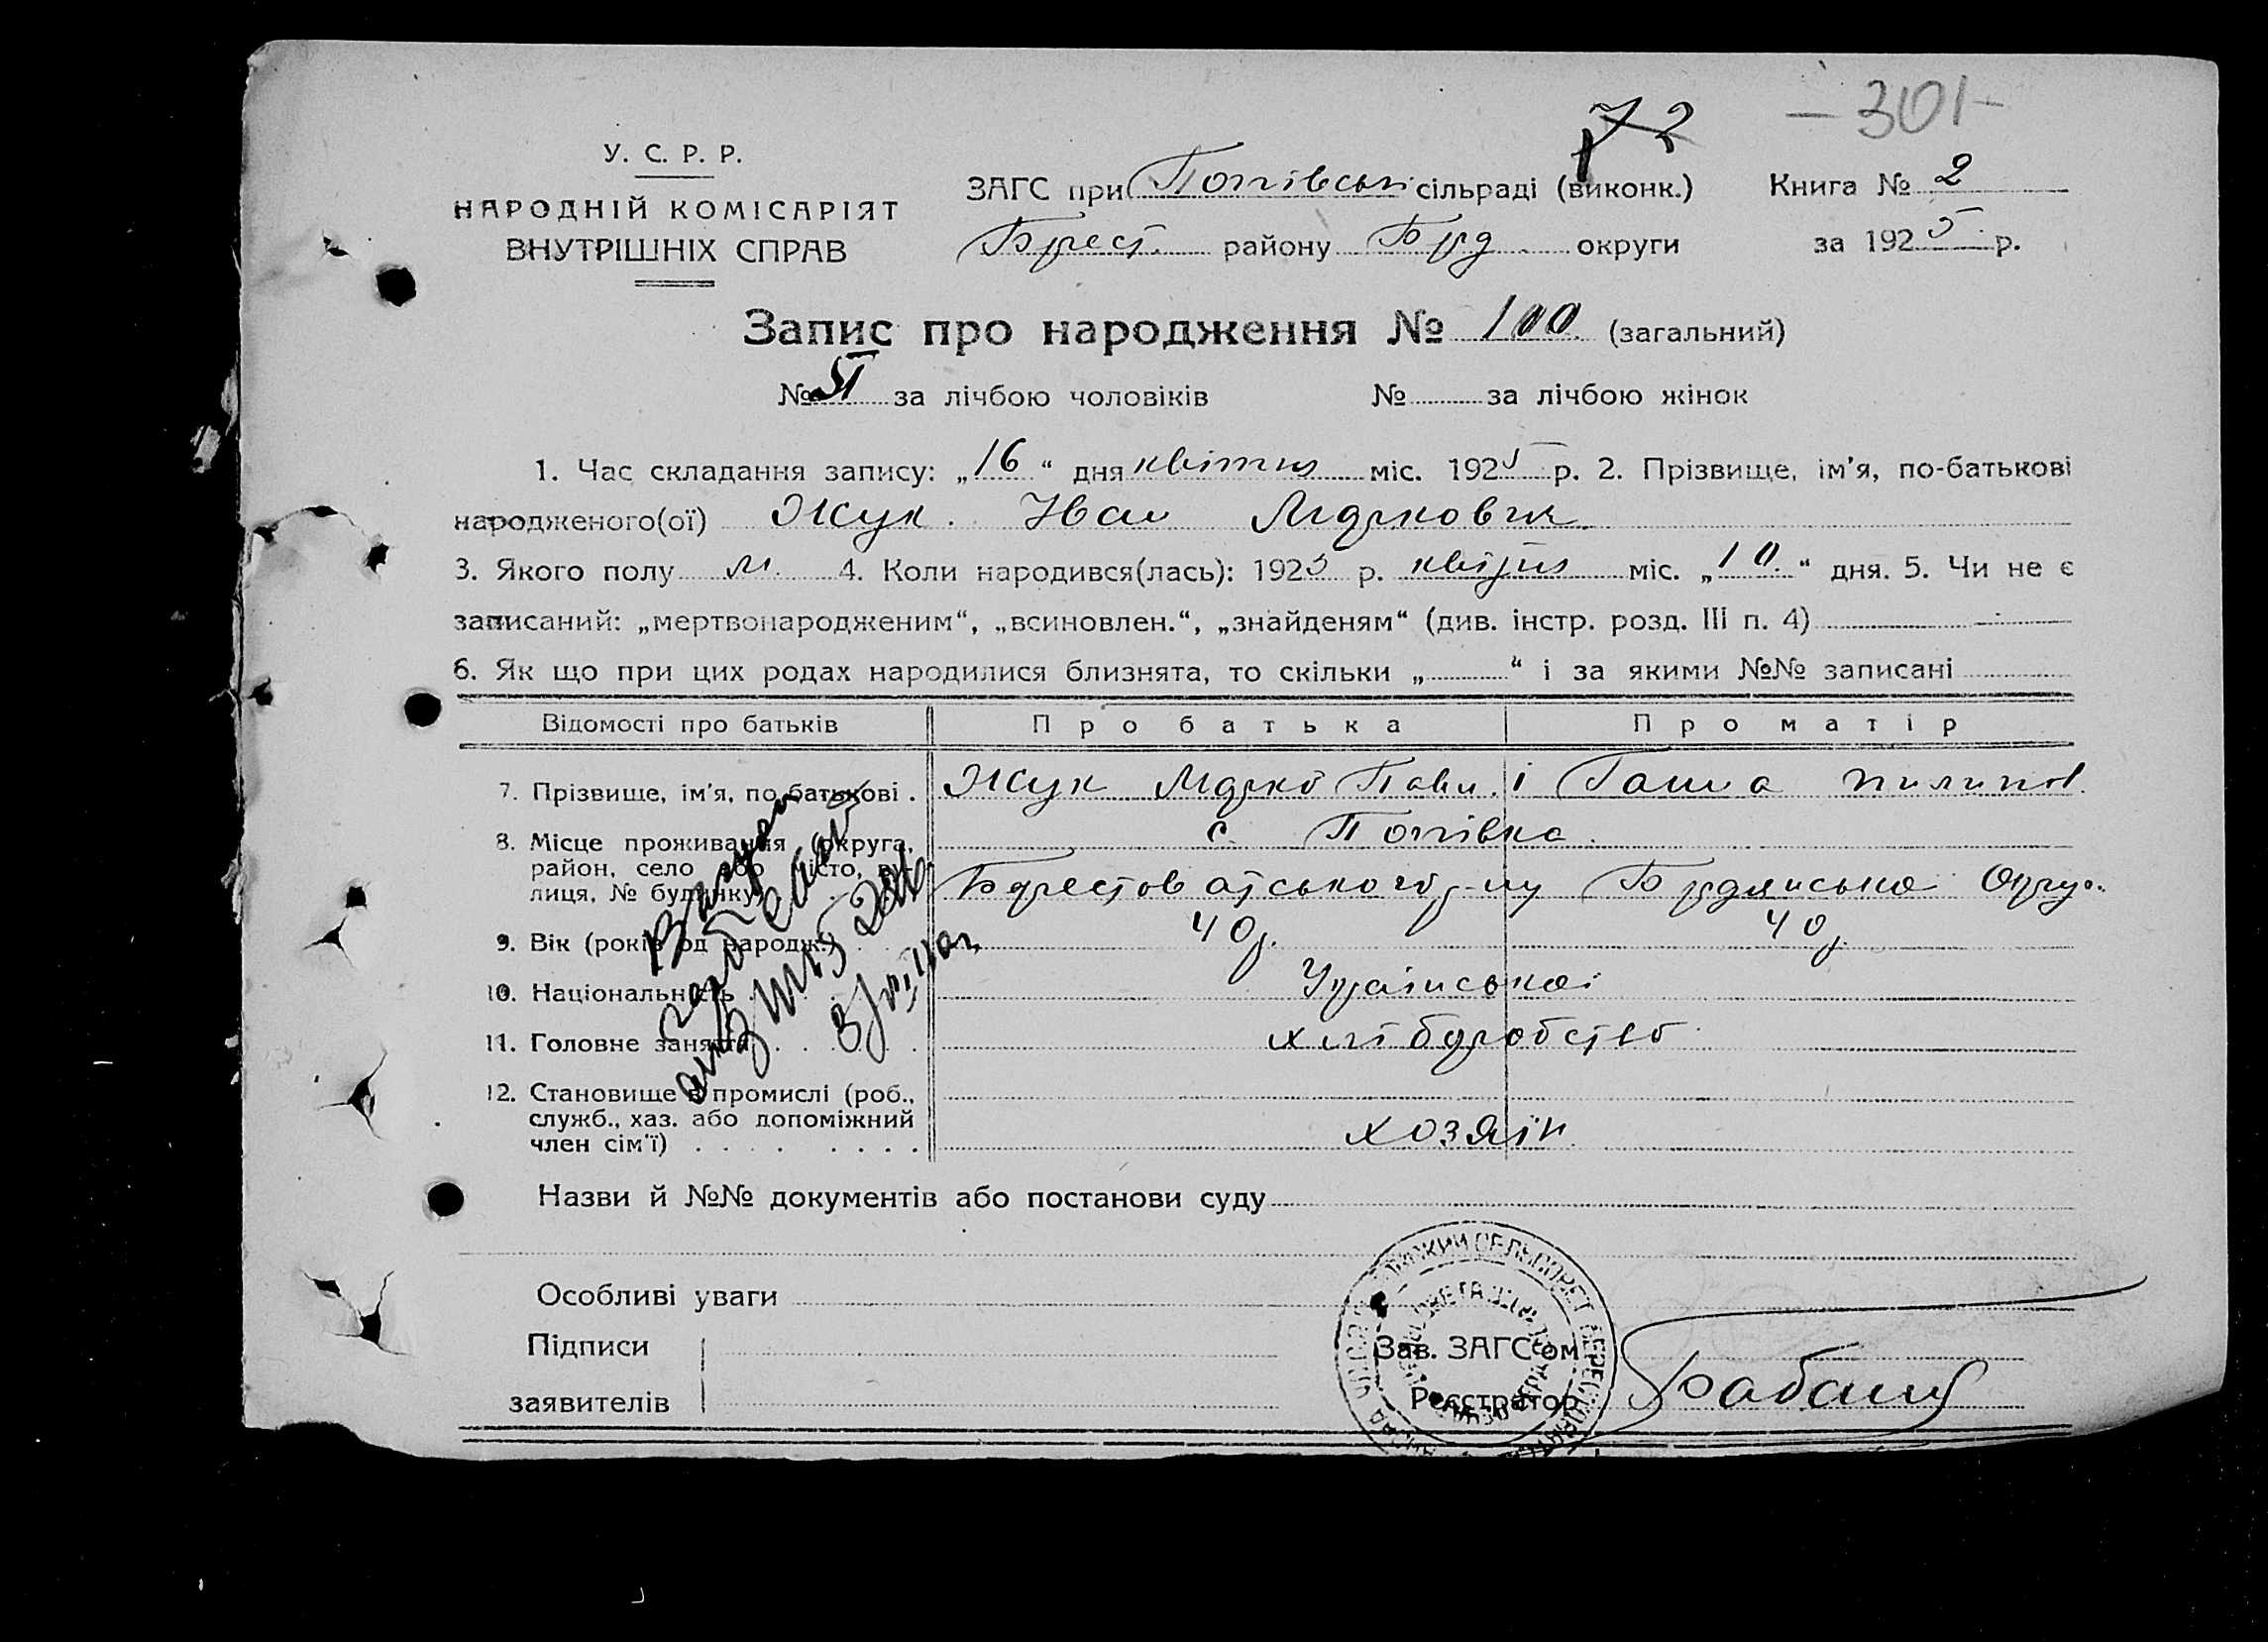 - 301 -
72
У. С. Р. Р.
НАРОДНІЙ КОМІСАРІЯТ
ВНУТРІШНІХ СПРАВ
ЗАГС при Попівські сільраді (виконк.) Книга № 2
Брест. району Брд. округи за 1925 р.
Запис про народження № 100 (загальний)
№ 51 за лічбою чоловіків № за лічбою жінок
1. Час складання запису: „16“ дня квітня міс. 1925 р. 2. Прізвище, ім’я, по-батькові
народженого(ої) Жук Иван Маркович
3. Якого полу м. 4. Коли народився(лась): 1925 р. квітня міс. „10“ дня. 5. Чи не є
записаний: „мертвонародженим“, „всиновлен.“, „знайденям“ (див. інстр. розд. III п. 4)
6. Як що при цих родах народилися близнята, то скільки „ “ і за якими №№ записані
Відомості про батьків Про батька Про матір
7. Прізвище, ім’я, по батькові . Жук Марко Павл. і Ганна Пилипов.
8. Місце проживання округа, с. Попівка.
район, село або місто, ву-
лиця, № будинку) Берестоватського р-ну Бердянська Округ.
9. Вік (років од народж.) 40 р. 40 р.
10. Національність Української
11. Головне заняття хліборобство
12. Становище в промислі (роб.,
служб., хаз. або допоміжний
член сім’ї) хозяін
Назви й №№ документів або постанови суду
Особливі уваги
Підписи
заявителів
Зав. ЗАГС’ом
Реєстратор